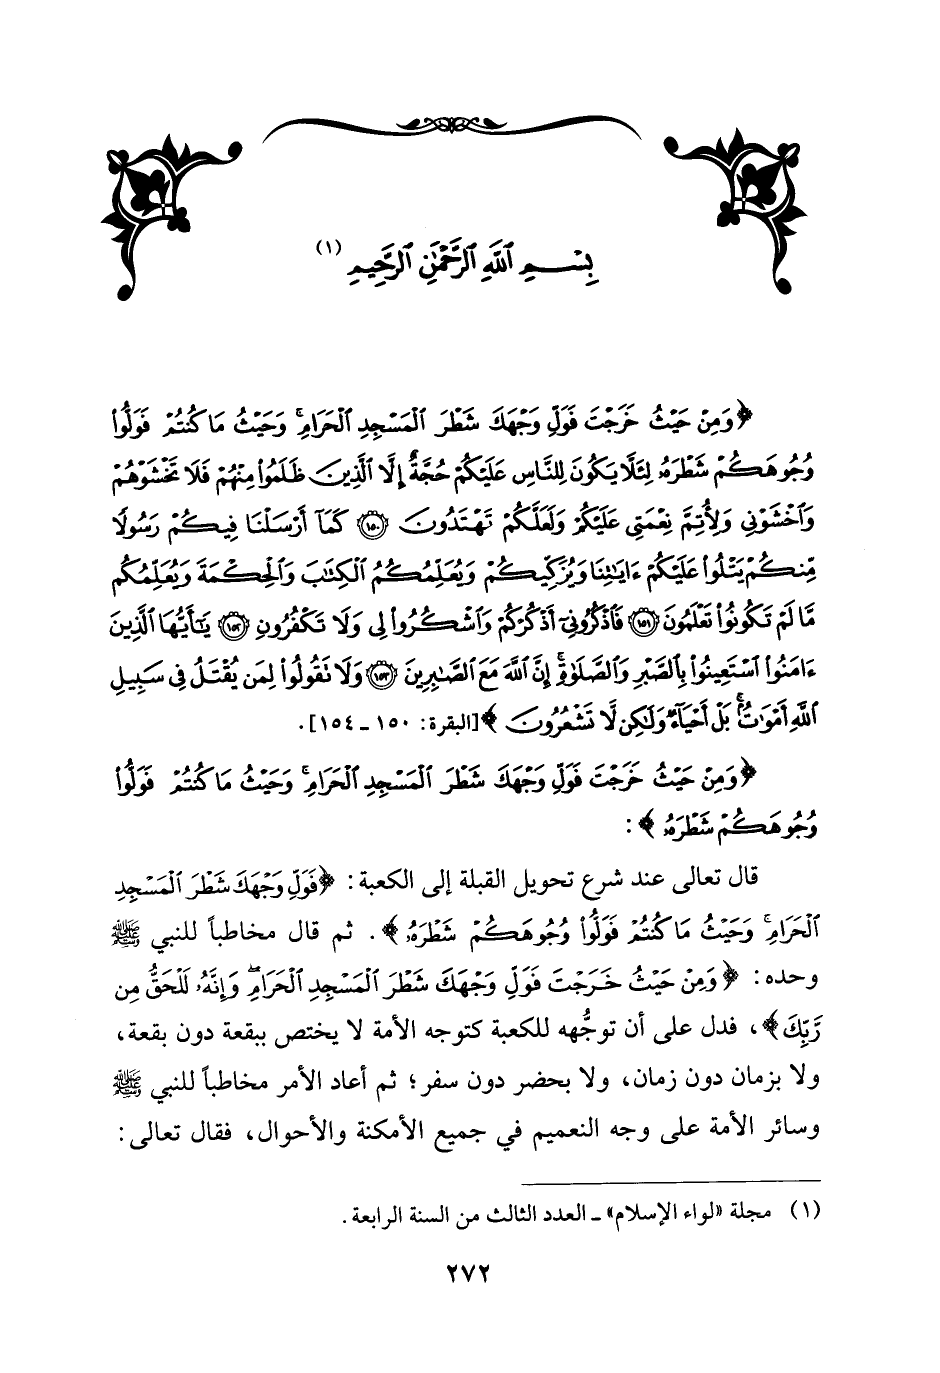 بِسْمِ ٱللَّهِ ٱلرَّحْمَٰنِ ٱلرَّحِيمِ (١)
﴿وَمِنْ حَيْثُ خَرَجْتَ فَوَلِّ وَجْهَكَ شَطْرَ ٱلْمَسْجِدِ ٱلْحَرَامِ ۚ وَحَيْثُ مَا كُنتُمْ فَوَلُّوا۟
وُجُوهَكُمْ شَطْرَهُۥ لِئَلَّا يَكُونَ لِلنَّاسِ عَلَيْكُمْ حُجَّةٌ إِلَّا ٱلَّذِينَ ظَلَمُوا۟ مِنْهُمْ فَلَا تَخْشَوْهُمْ
وَٱخْشَوْنِى وَلِأُتِمَّ نِعْمَتِى عَلَيْكُمْ وَلَعَلَّكُمْ تَهْتَدُونَ ۝١٥٠ كَمَآ أَرْسَلْنَا فِيكُمْ رَسُولًا
مِّنكُمْ يَتْلُوا۟ عَلَيْكُمْ ءَايَٰتِنَا وَيُزَكِّيكُمْ وَيُعَلِّمُكُمُ ٱلْكِتَٰبَ وَٱلْحِكْمَةَ وَيُعَلِّمُكُم
مَّا لَمْ تَكُونُوا۟ تَعْلَمُونَ ۝١٥١ فَٱذْكُرُونِىٓ أَذْكُرْكُمْ وَٱشْكُرُوا۟ لِى وَلَا تَكْفُرُونِ ۝١٥٢ يَٰٓأَيُّهَا ٱلَّذِينَ
ءَامَنُوا۟ ٱسْتَعِينُوا۟ بِٱلصَّبْرِ وَٱلصَّلَوٰةِ ۚ إِنَّ ٱللَّهَ مَعَ ٱلصَّٰبِرِينَ ۝١٥٣ وَلَا تَقُولُوا۟ لِمَن يُقْتَلُ فِى سَبِيلِ
ٱللَّهِ أَمْوَٰتٌۢ ۚ بَلْ أَحْيَآءٌ وَلَٰكِن لَّا تَشْعُرُونَ﴾ [البقرة: ١٥٠ ـ ١٥٤].
﴿وَمِنْ حَيْثُ خَرَجْتَ فَوَلِّ وَجْهَكَ شَطْرَ ٱلْمَسْجِدِ ٱلْحَرَامِ ۚ وَحَيْثُ مَا كُنتُمْ فَوَلُّوا۟
وُجُوهَكُمْ شَطْرَهُۥ﴾:
قال تعالى عند شرع تحويل القبلة إلى الكعبة: ﴿فَوَلِّ وَجْهَكَ شَطْرَ ٱلْمَسْجِدِ
ٱلْحَرَامِ ۚ وَحَيْثُ مَا كُنتُمْ فَوَلُّوا۟ وُجُوهَكُمْ شَطْرَهُۥ﴾. ثم قال مخاطباً للنبي ﷺ
وحده: ﴿وَمِنْ حَيْثُ خَرَجْتَ فَوَلِّ وَجْهَكَ شَطْرَ ٱلْمَسْجِدِ ٱلْحَرَامِ ۖ وَإِنَّهُۥ لَلْحَقُّ مِن
رَّبِّكَ﴾، فدل على أن توجُّهه للكعبة كتوجه الأمة لا يختص ببقعة دون بقعة،
ولا بزمان دون زمان، ولا بحضر دون سفر؛ ثم أعاد الأمر مخاطباً للنبي ﷺ
وسائر الأمة على وجه التعميم في جميع الأمكنة والأحوال، فقال تعالى:
(١) مجلة «لواء الإسلام» ـ العدد الثالث من السنة الرابعة.
٢٧٢